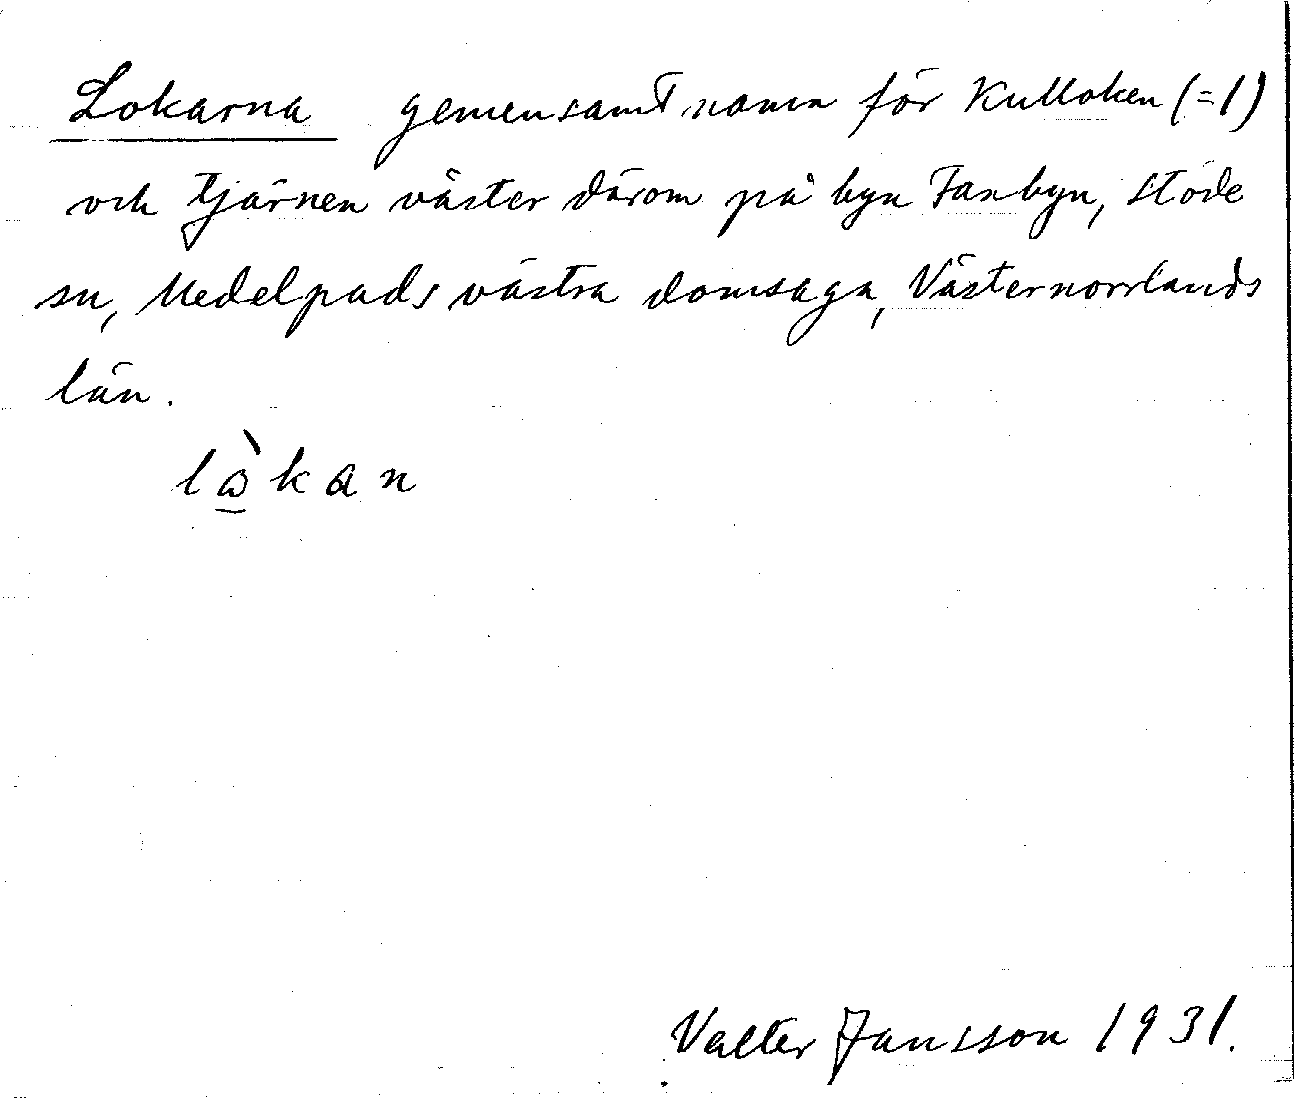 Lokarna gemensamt namn för Kulloken (=1)
och tjärnen väster därom på byn Fanbyn, Stöde
sn, Medelpads västra domsaga, Västernorrlands
län.
lò̱kan
Valter Jansson 1931.